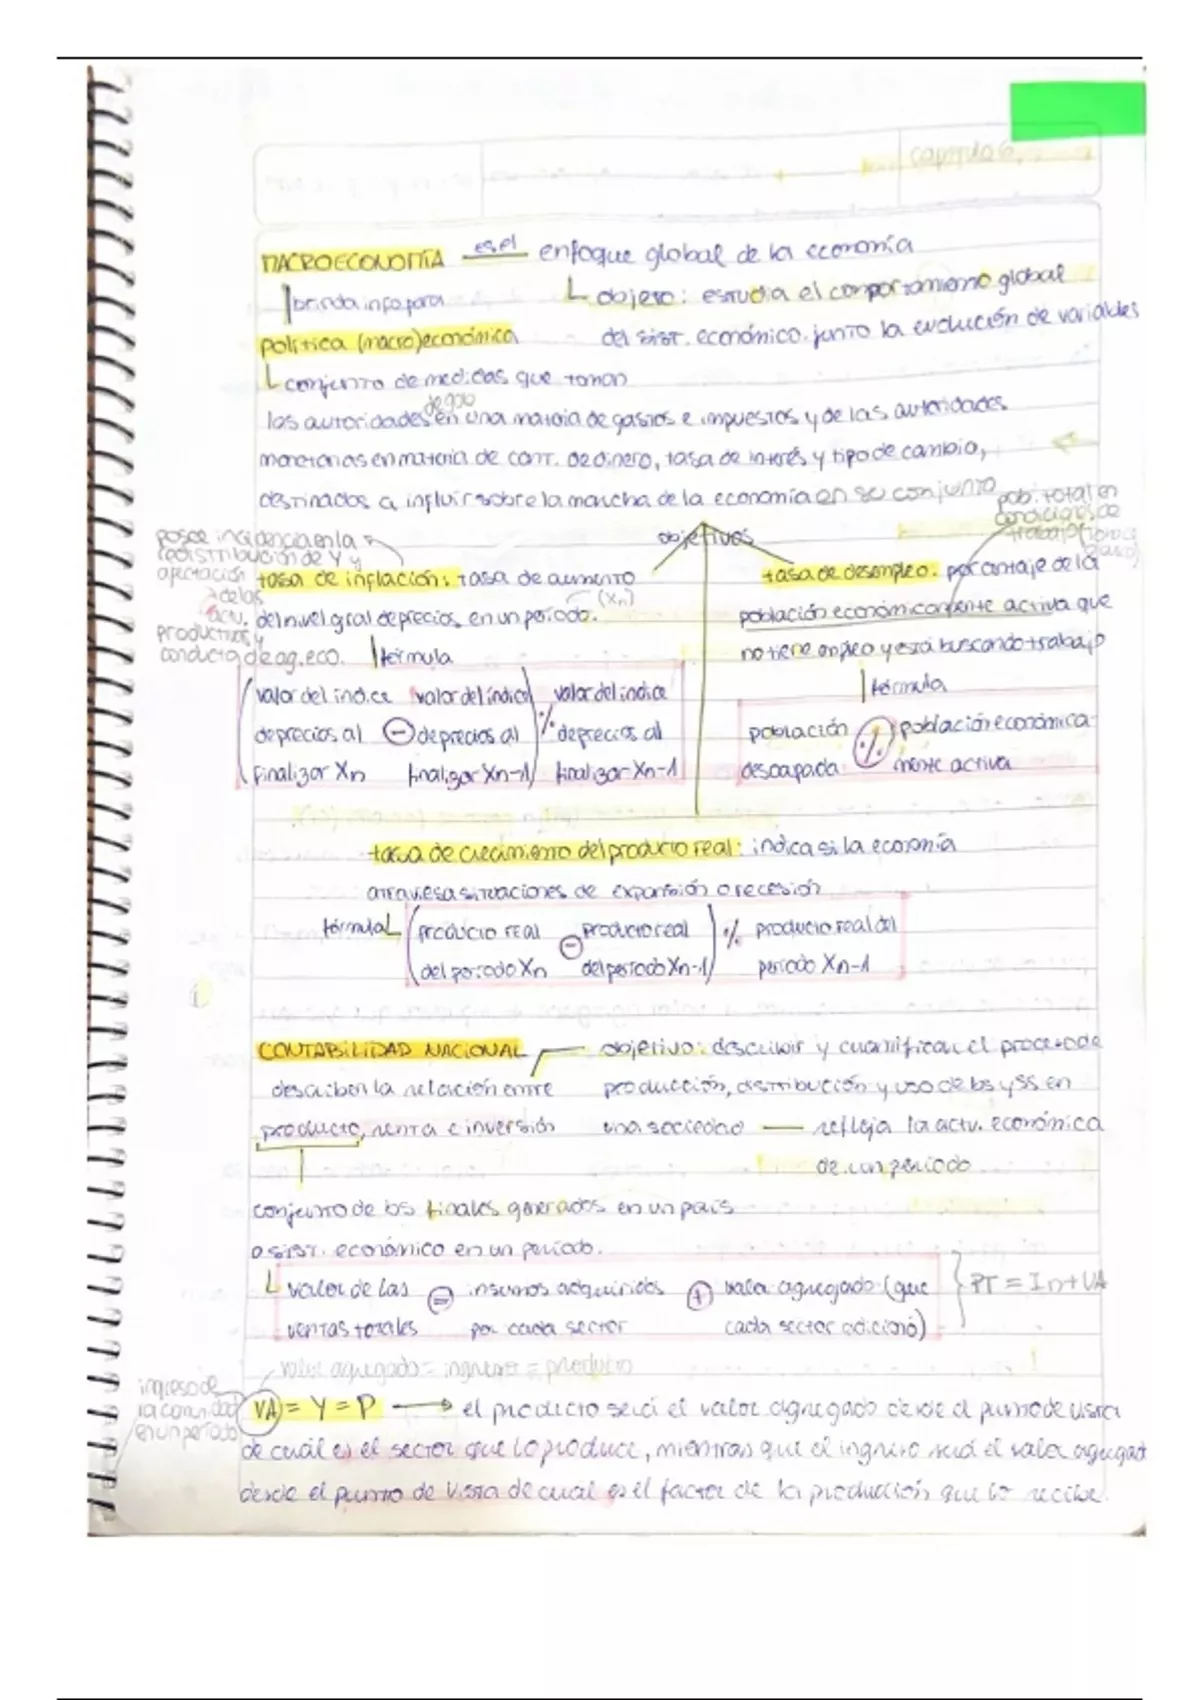 capitulo 6
MACROECONOMÍA es el enfoque global de la economía
brinda info para
objeto: estudia el comportamiento global
política (macro)económica
del sist. económico. junto la evolución de variables
conjunto de medidas que toman
las autoridades de gob en una materia de gastos e impuestos y de las autoridades
monetarias en materia de cant. de dinero, tasa de interés y tipo de cambio,
destinados a influir sobre la marcha de la economía en su conjunto
pob. total en
condiciones de
trabajo
objetivos
posee incidencia en la
redistribución de Y y
afectación
de las
actu.
productivas y
conducta de ag. eco.
tasa de inflación: tasa de aumento
(Xn)
del nivel gral de precios, en un período.
fórmula
tasa de desempleo. porcentaje de la
población económicamente activa que
no tiene empleo y está buscando trabajo
fórmula
valor del indice valor del índice valor del indice
de precios al − de precios al % de precios al
finalizar Xn finalizar Xn-1 finalizar Xn-1
población % población económica-
desocupada mente activa
tasa de crecimiento del producto real: indica si la economía
atraviesa situaciones de expansión o recesión
fórmula (producto real − producto real) % producto real del
del período Xn del período Xn-1 período Xn-1
CONTABILIDAD NACIONAL objetivo: describir y cuantificar el proceso de
describen la relación entre producción, distribución y uso de bs y ss en
producto, renta e inversión una sociedad — refleja la actv. económica
de un período
conjunto de bs finales generados en un país
o sist. económico en un período.
valor de las = insumos adquiridos + valor agregado (que
ventas totales por cada sector cada sector adicionó)
} PT = In + VA
valor agregado = ingreso = producto
ingreso de
la comunidad
en un período
VA = Y = P → el producto será el valor agregado desde el punto de vista
de cuál es el sector que lo produce, mientras que el ingreso será el valor agregad
desde el punto de vista de cual es el factor de la producción que lo recibe.